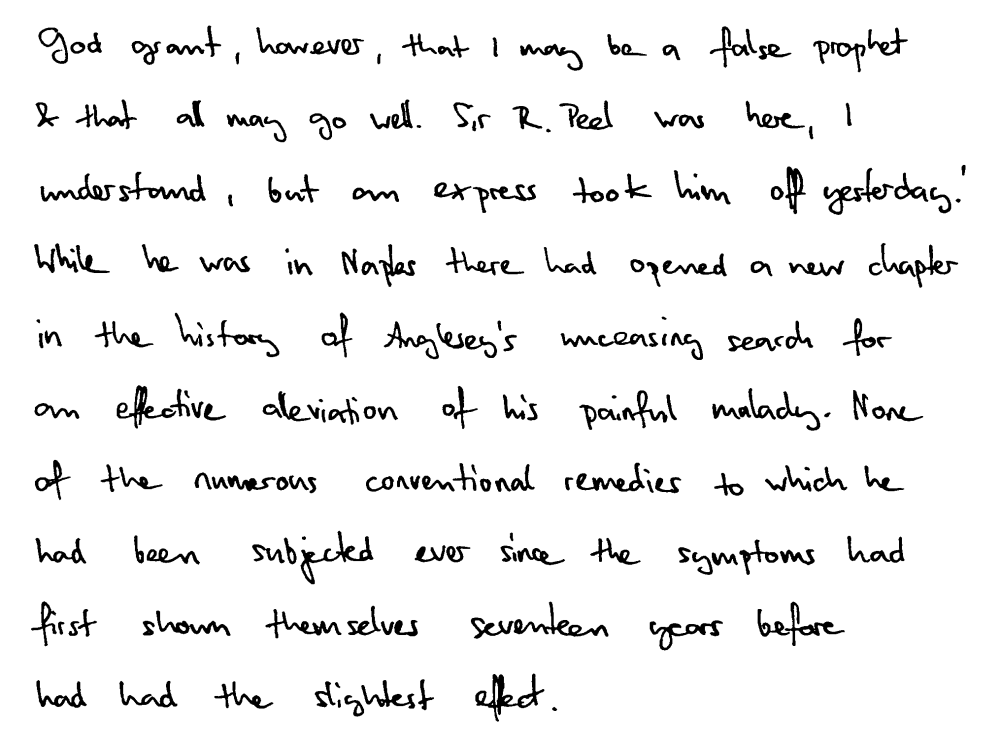 God grant, however, that I may be a false prophet
& that all may go well. Sir R. Peel was here, I
understand, but an express took him off yesterday.'
While he was in Naples there had opened a new chapter
in the history of Anglesey's unceasing search for
an effective aleviation of his painful malady. None
of the numerous conventional remedies to which he
had been subjected ever since the symptoms had
first shown themselves seventeen years before
had had the slightest effect.